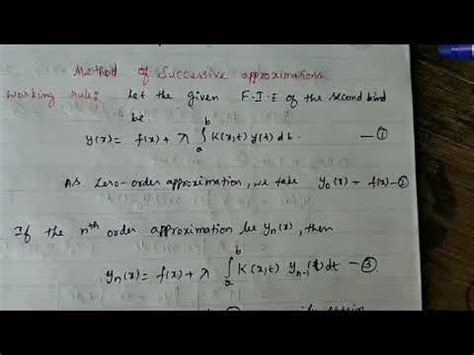 Method of Successive approximations
Working rule: Let the given F.I.E of the second kind
be
y(x) = f(x) + λ ∫ₐᵇ K(x,t) y(t) dt. —①
As Zero-order approximation, we take y₀(x) = f(x) —②
If the nᵗʰ order approximation be yₙ(x), then
yₙ(x) = f(x) + λ ∫ₐᵇ K(x,t) yₙ₋₁(t) dt —③